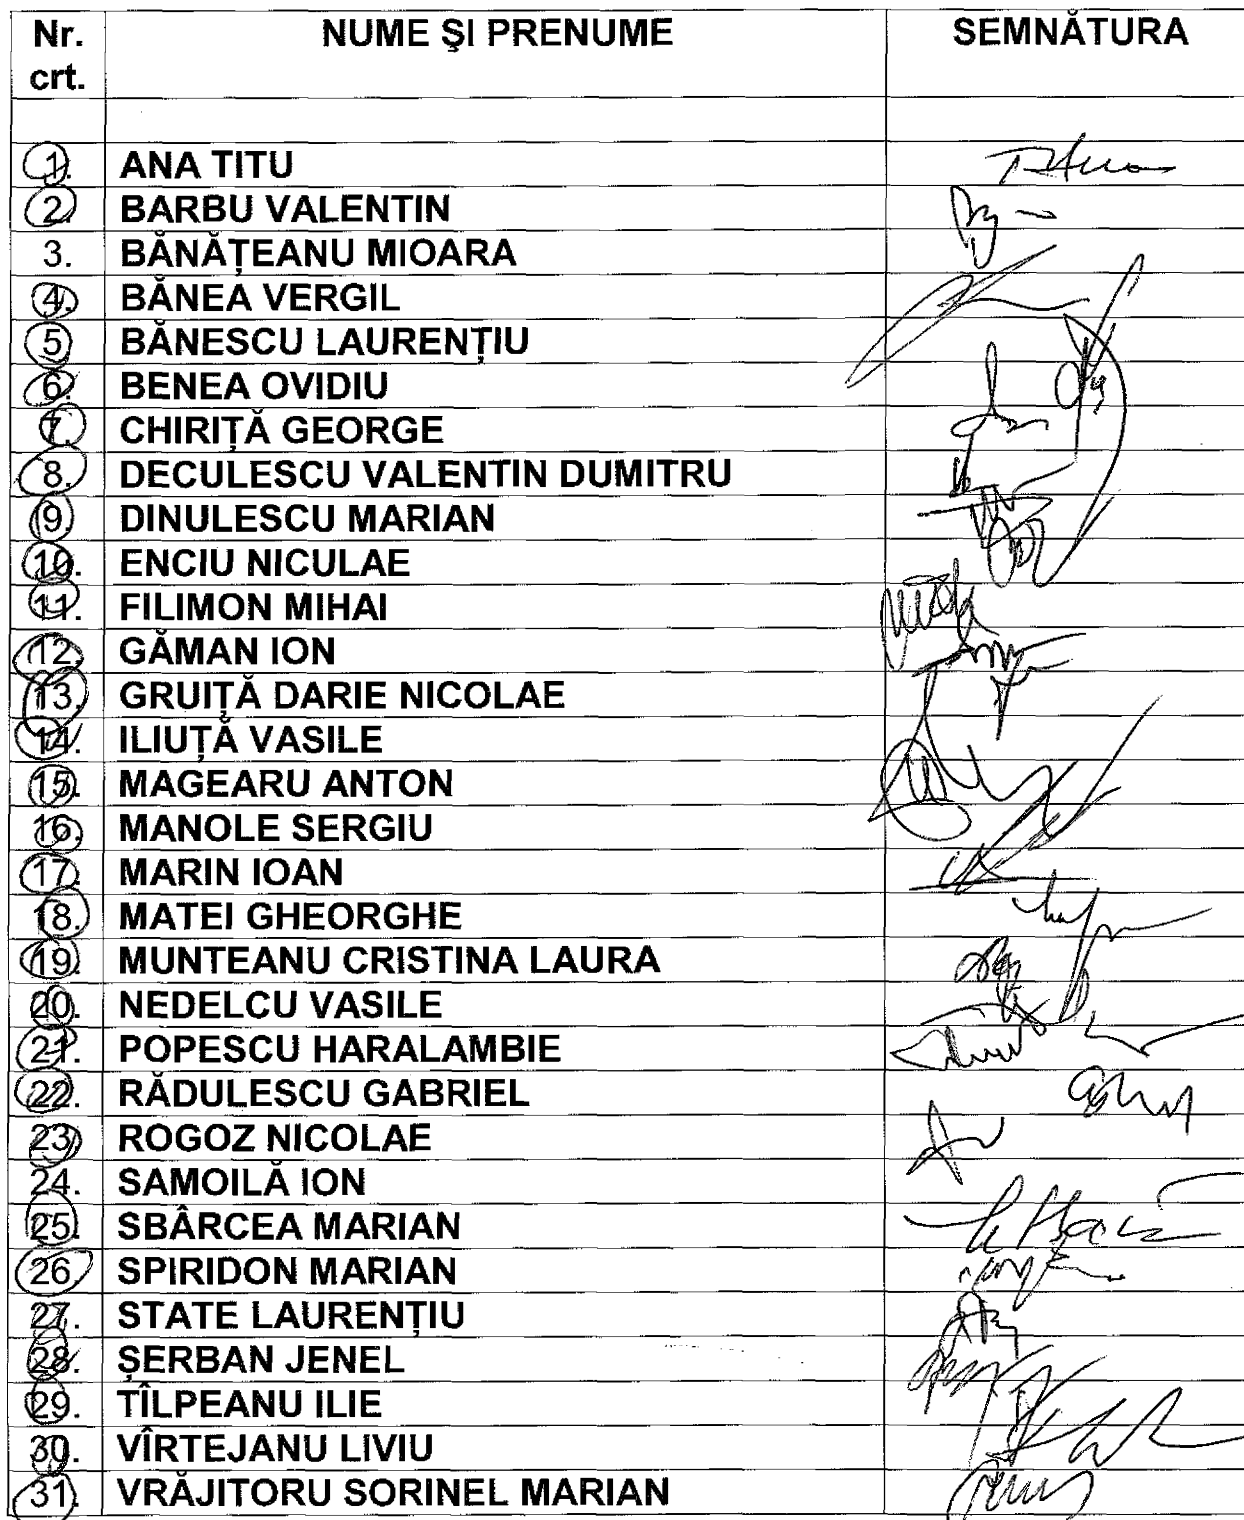 Nr. crt. NUME ŞI PRENUME SEMNĂTURA
1. ANA TITU
2. BARBU VALENTIN
3. BĂNĂŢEANU MIOARA
4. BĂNEA VERGIL
5 BĂNESCU LAURENŢIU
6. BENEA OVIDIU
7. CHIRIŢĂ GEORGE
8. DECULESCU VALENTIN DUMITRU
9. DINULESCU MARIAN
10. ENCIU NICULAE
11. FILIMON MIHAI
12. GĂMAN ION
13. GRUIŢĂ DARIE NICOLAE
14. ILIUŢĂ VASILE
15. MAGEARU ANTON
16. MANOLE SERGIU
17. MARIN IOAN
18. MATEI GHEORGHE
19. MUNTEANU CRISTINA LAURA
20. NEDELCU VASILE
21. POPESCU HARALAMBIE
22. RĂDULESCU GABRIEL
23. ROGOZ NICOLAE
24. SAMOILĂ ION
25. SBÂRCEA MARIAN
26. SPIRIDON MARIAN
27. STATE LAURENŢIU
28. ŞERBAN JENEL
29. TÎLPEANU ILIE
30. VÎRTEJANU LIVIU
31. VRĂJITORU SORINEL MARIAN